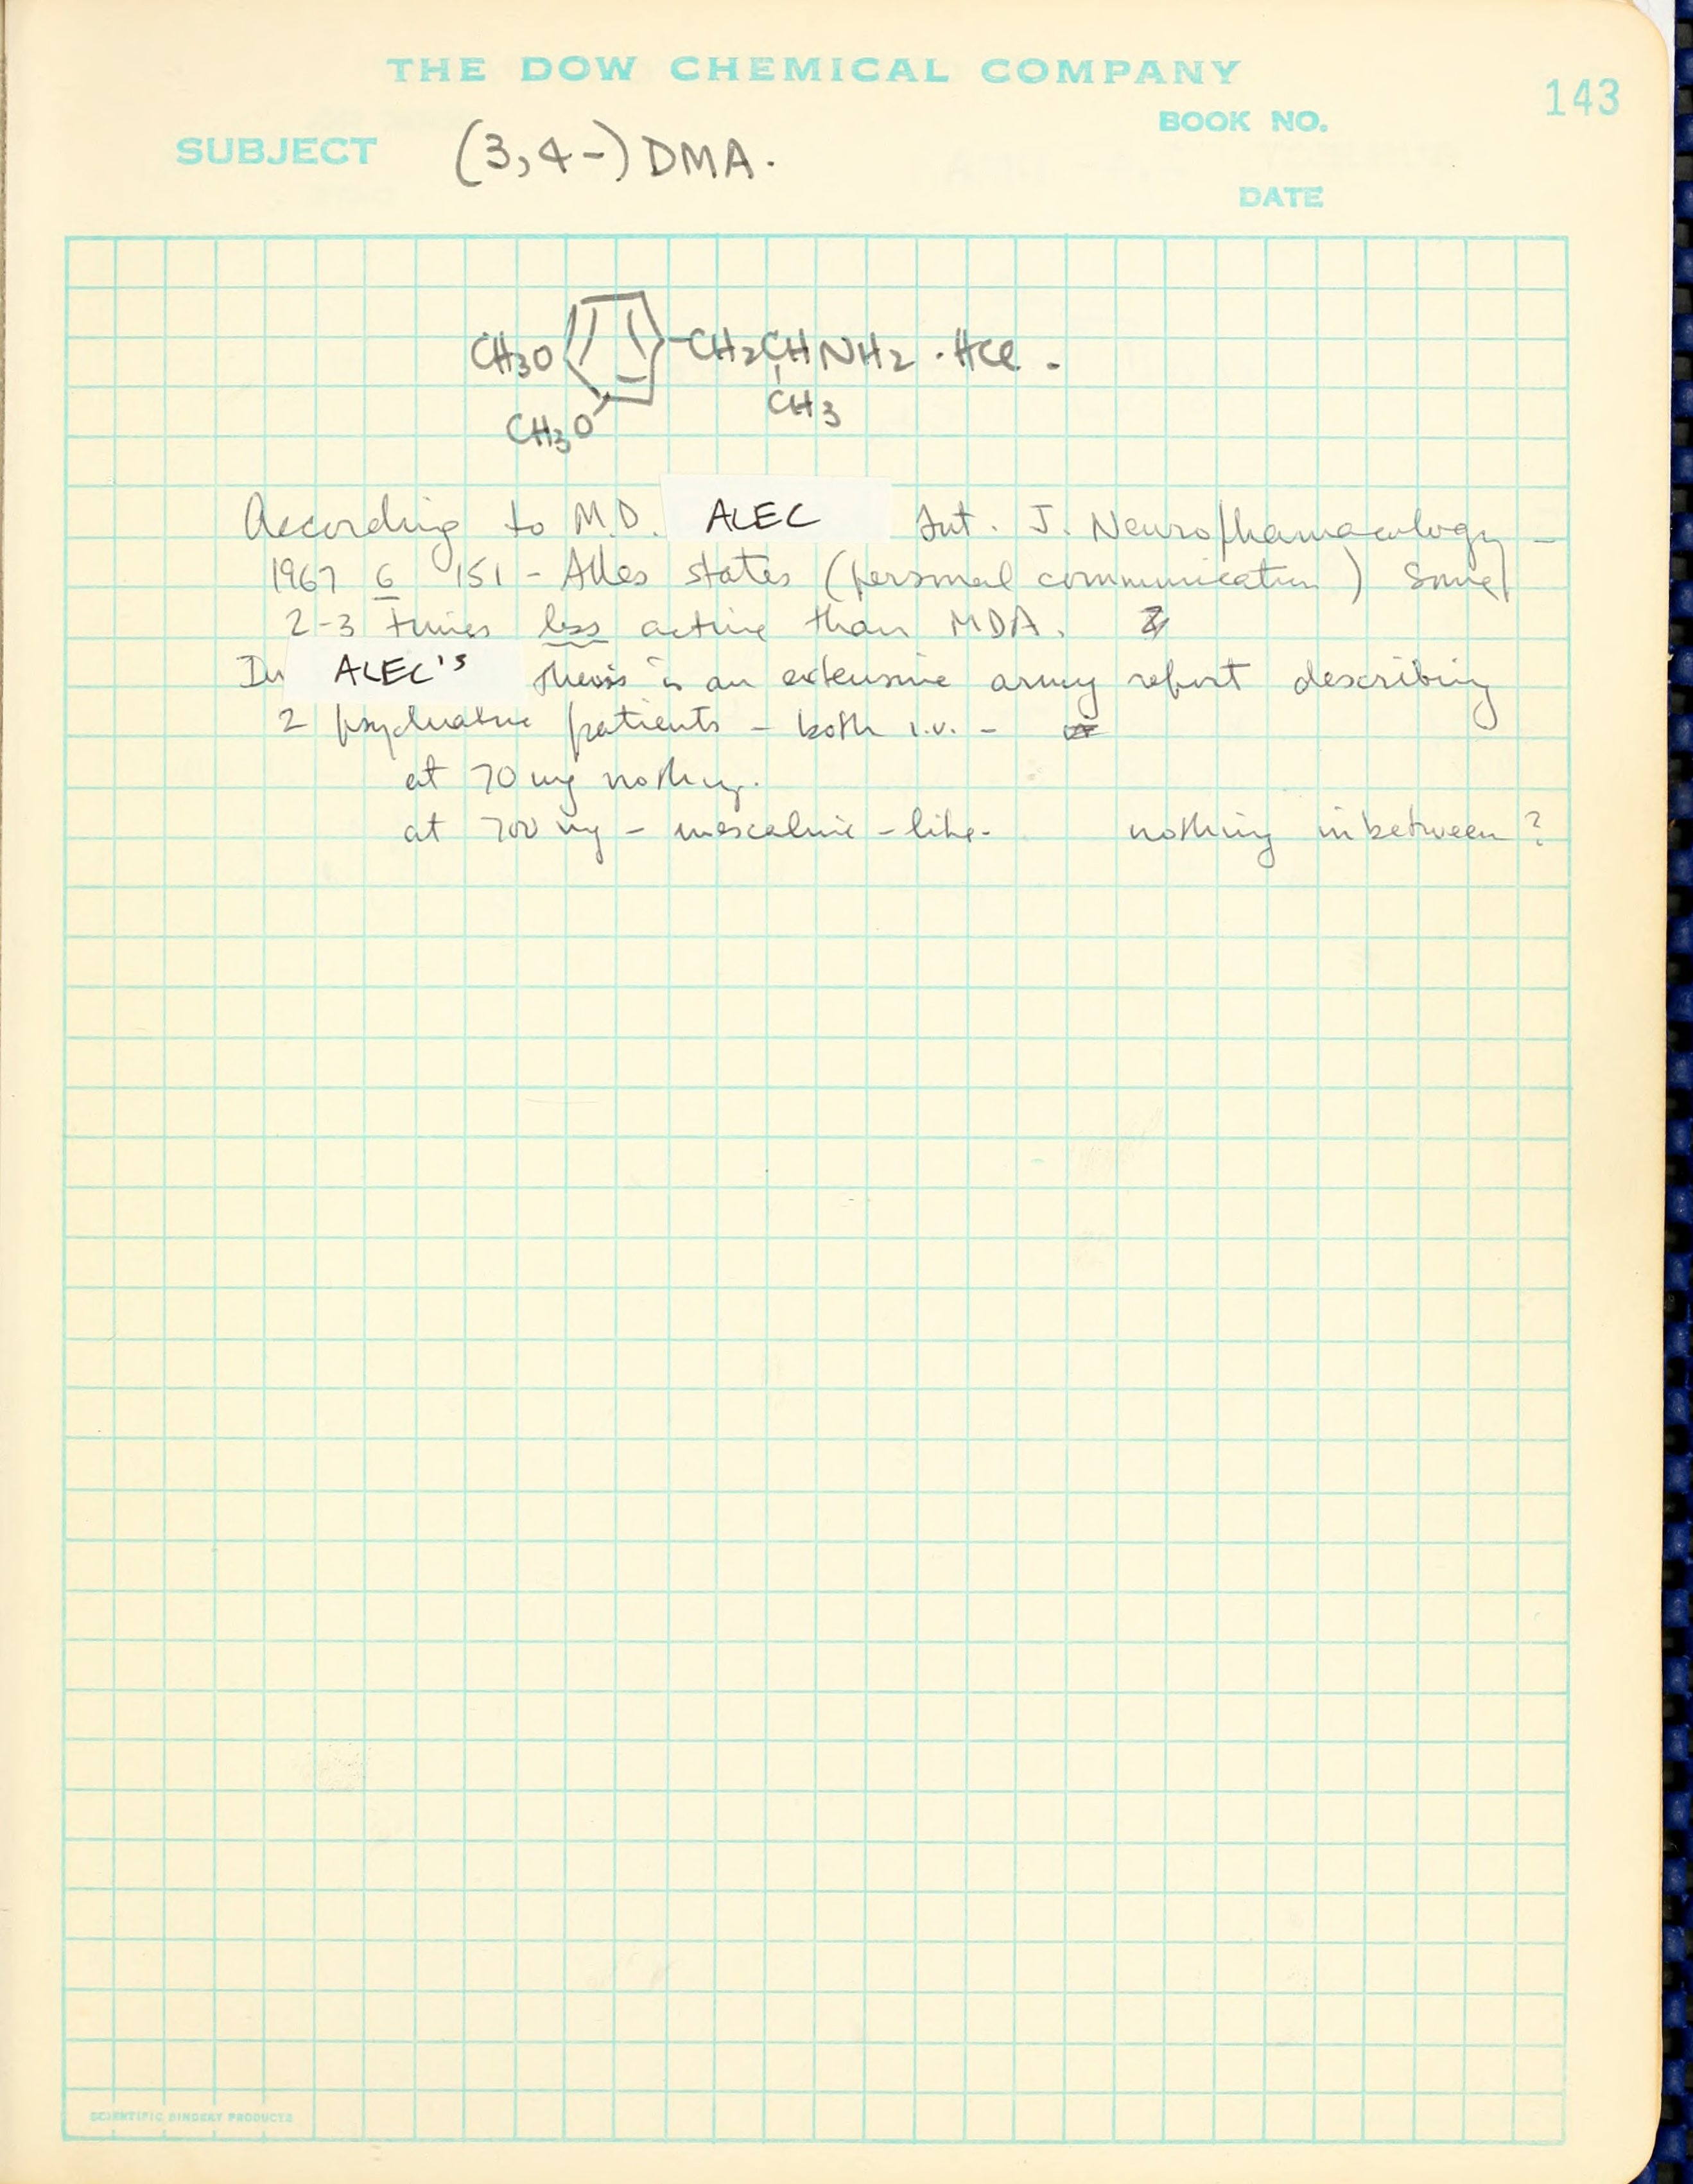 THE DOW CHEMICAL COMPANY
143
BOOK NO.
SUBJECT (3,4-) DMA.
DATE
CH3O CH2CHNH2 · HCl .
CH3
CH3O
According to M.D. ALEC Int. J. Neuropharmacology -
1967 6 151 - Alles states (personal communication) some
2-3 times less active than MDA.
In ALEC'S thesis is an extensive army report describing
2 psychiatric patients - both i.v. -
at 70 mg nothing.
at 700 mg - mescaline-like. nothing in between?
SCIENTIFIC BINDERY PRODUCTS